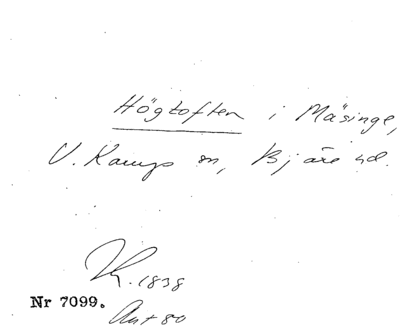 Högtoften i Mäsinge,
V. Karups sn, Bjäre hd.
1838
Nr 7099.
Ant 80